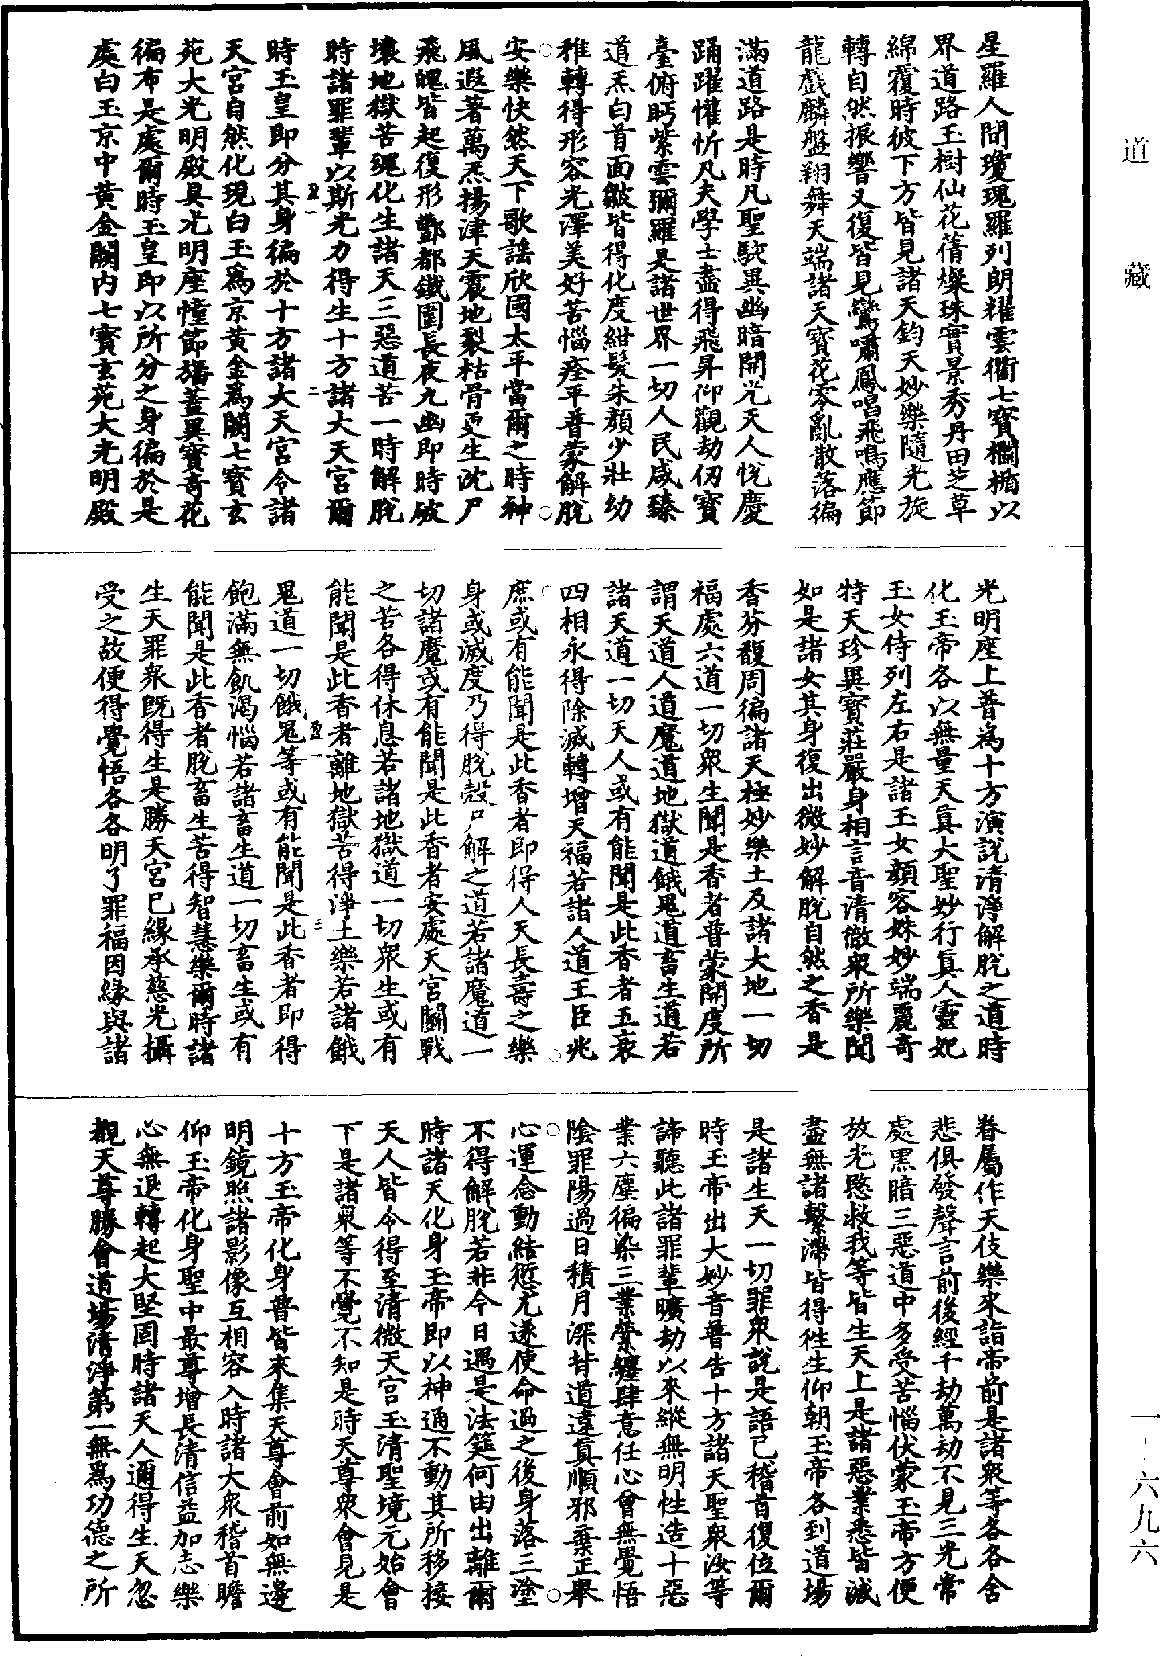 道藏
星羅人間瓊瑰羅列朗耀雲衢七寶欄楯以
界道路玉樹仙花蒨燦珠實景秀丹田芝草
綿覆時彼下方皆見諸天鈞天妙樂隨光旋
轉自然振響又復皆見鸞嘯鳳唱飛鳴應節
龍戲麟盤翔舞天端諸天寶花零亂散落徧
滿道路是時凡聖駭異幽暗開光天人悅慶
踊躍懽忻凡夫學士盡得飛昇仰觀劫仞寶
臺俯眄紫雲彌羅是諸世界一切人民咸臻
道炁白首面皺皆得化度紺髮朱顏少壯幼
稚轉得形容光澤美好苦惱痊平普蒙解脫
安樂快然天下歌謠欣國太平當爾之時神
風遐著萬炁揚津天震地裂枯骨更生沈尸
飛魄皆起復形酆都鐵圍長夜九幽即時破
壞地獄苦魂化生諸天三惡道苦一時解脫
時諸罪輩以斯光力得生十方諸大天宮爾
時玉皇即分其身徧於十方諸大天宮令諸
天宮自然化現白玉為京黃金為闕七寶玄
苑大光明殿具光明座幢節旛蓋異寶奇花
徧布是處爾時玉皇即以所分之身徧於是
處白玉京中黃金闕內七寶玄苑大光明殿
光明座上普為十方演說清淨解脫之道時
化玉帝各以無量天真大聖妙行真人靈妃
玉女侍列左右是諸玉女顏容姝妙端麗奇
特天珍異寶莊嚴身相言音清徹眾所樂聞
如是諸女其身復出微妙解脫自然之香是
香芬馥周徧諸天極妙樂土及諸大地一切
福處六道一切眾生聞是香者普蒙開度所
謂天道人道魔道地獄道餓鬼道畜生道若
諸天道一切天人或有能聞是此香者五衰
四相永得除滅轉增天福若諸人道王臣兆
庶或有能聞是此香者即得人天長壽之樂
身或滅度乃得脫殼尸解之道若諸魔道一
切諸魔或有能聞是此香者安處天宮關戰
之苦各得休息若諸地獄道一切眾生或有
能聞是此香者離地獄苦得淨土樂若諸餓
鬼道一切餓鬼等或有能聞是此香者即得
飽滿無飢渴惱若諸畜生道一切畜生或有
能聞是此香者脫畜生苦得智慧樂爾時諸
生天罪眾既得生是勝天宮已緣承慈光攝
受之故便得覺悟各各明了罪福因緣與諸
眷屬作天伎樂來詣帝前是諸眾等各各含
悲俱發聲言前後經千劫萬劫不見三光常
處黑暗三惡道中多受苦惱伏蒙玉帝方便
放光愍救我等皆生天上是諸惡業悉皆滅
盡無諸繫滯皆得往生仰朝玉帝各到道場
是諸生天一切罪眾說是語已稽首復位爾
時玉帝出大妙音普告十方諸天聖眾汝等
諦聽此諸罪輩曠劫以來縱無明性造十惡
業六塵徧染三業縈纏肆意任心曾無覺悟
陰罪陽過日積月深背道違真順邪棄正舉
心運念動結愆尤遂使命過之後身落三塗
不得解脫若非今日遇是法筵何由出離爾
時諸天化身玉帝即以神通不動其所移接
天人皆令得至清微天宮玉清聖境元始會
下是諸眾等不覺不知是時天尊眾會見是
十方玉帝化身普皆來集天尊會前如無邊
明鏡照諸影像互相容入時諸大眾稽首瞻
仰玉帝化身聖中最尊增長清信益加志樂
心無退轉起大堅固時諸天人邇得生天忽
覩天尊勝會道場清淨第一無為功德之所
一-六九六